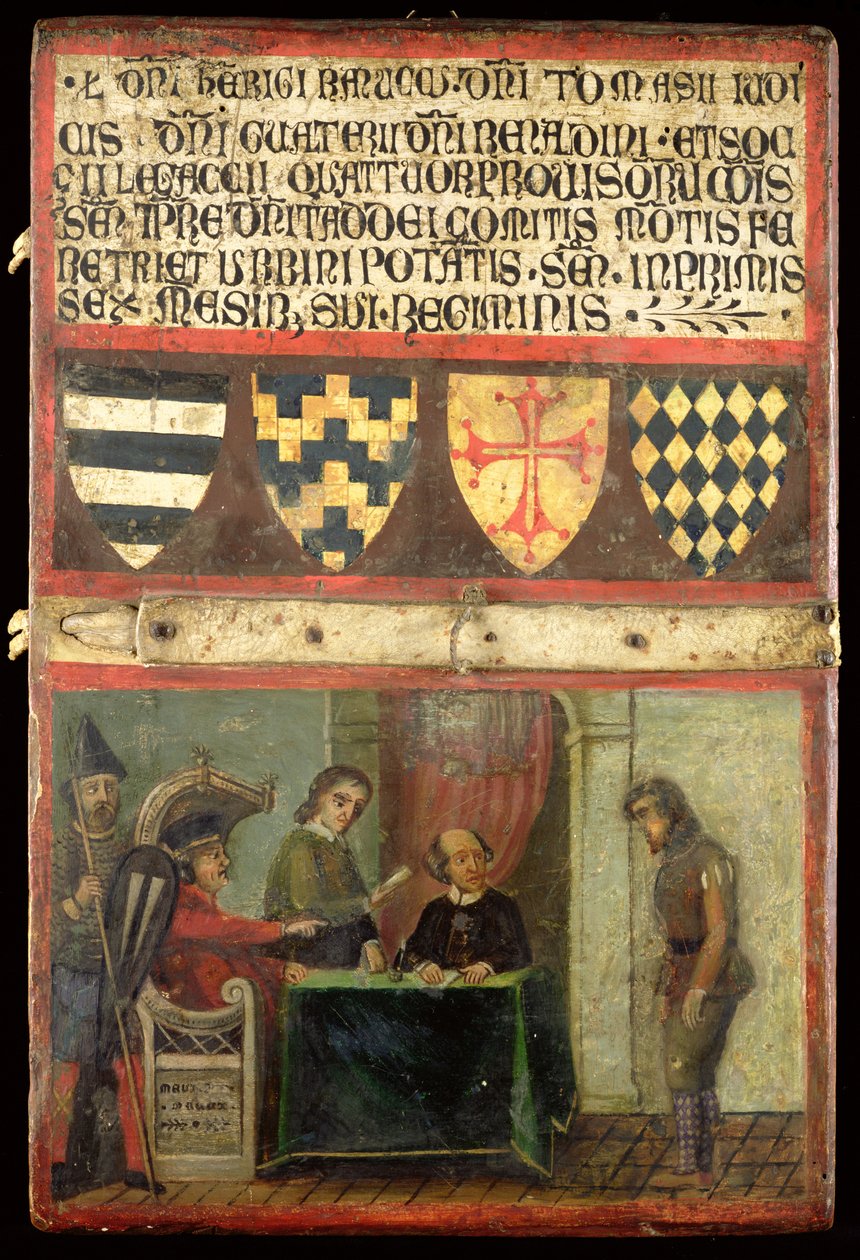 · ⁊ DN̄I HĒRIGI RANUCCII · DN̄I TOMASII IUDI
CIS · DN̄I GUATERII DN̄I RENADINI : ET SOC
II LEGACCII QUATTUOR PROUISORU CŌIS
SEN̄ TP̄RE DN̄I TADDEI COMITIS MŌTIS FE
RETRI ET URBINI POTĀTIS · SEN̄ · IN PRIMIS
SEX MESIB₃ SUI · REGIMINIS